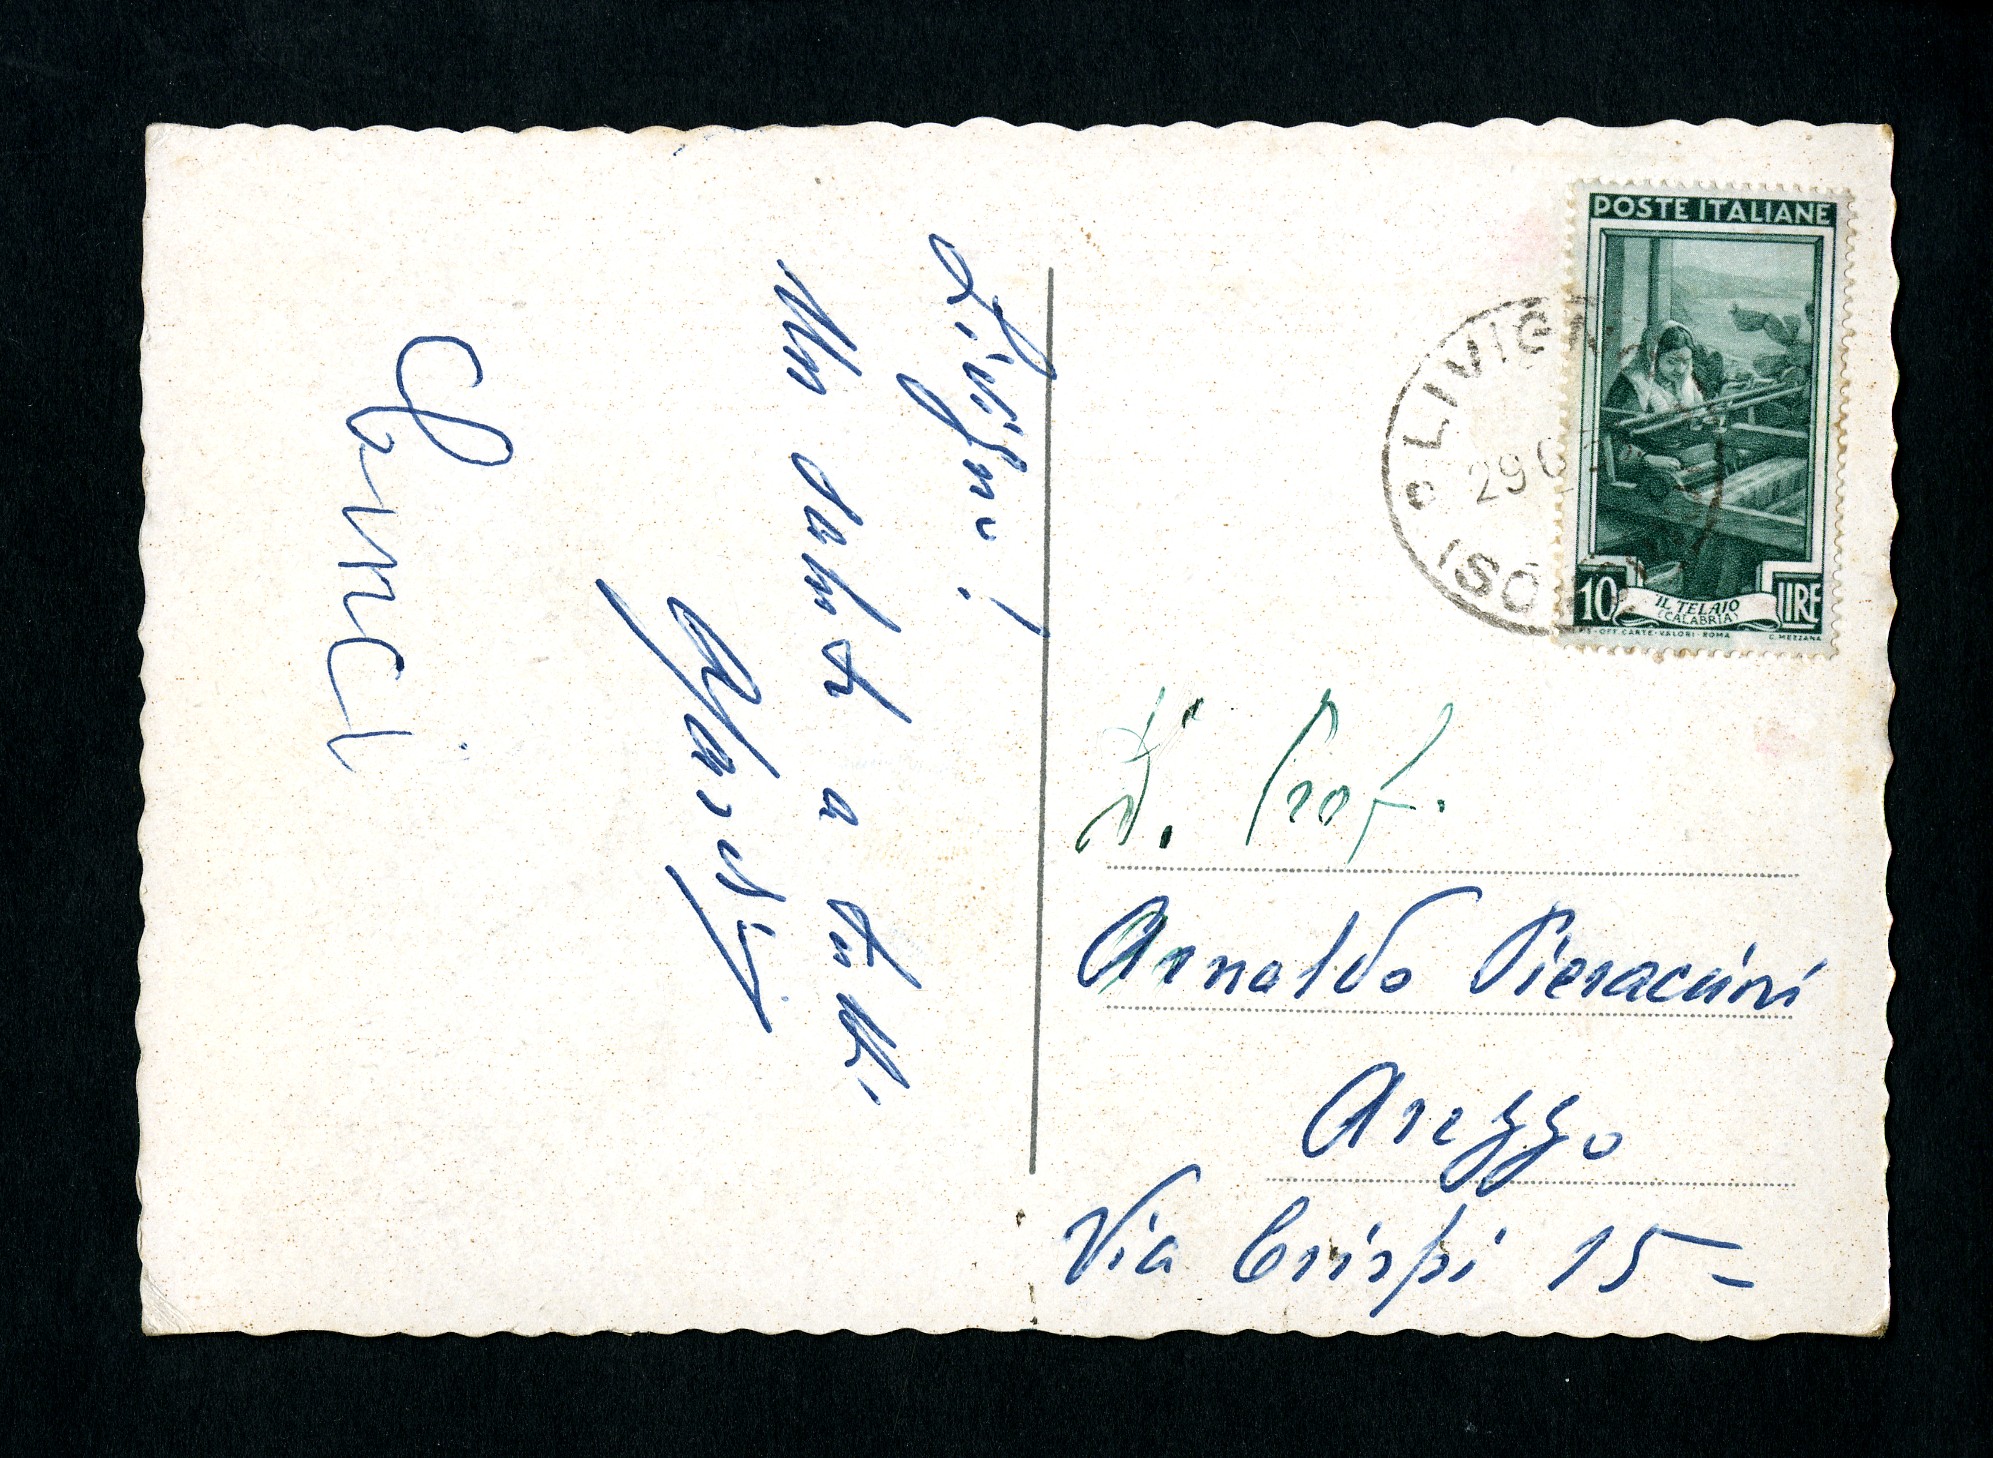 Livigno!
Un saluto a tutti
POSTE ITALIANE
10 LIRE
IL TELAIO
(CALABRIA)
OFF. CARTE-VALORI-ROMA
C. MEZZANA
LIVIGN
29
Prof.
Arnaldo Pieraccini
Arezzo
Via Crispi 15 =